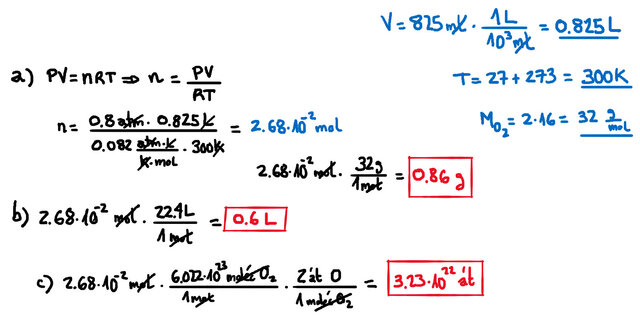 V = 825 mL · 1L / 10³ mL = 0.825 L
a) PV = nRT ⇒ n = PV / RT
T = 27 + 273 = 300K
n = 0.8 atm · 0.825 L / 0.082 atm·L / K·mol · 300K = 2.68·10⁻² mol
M O₂ = 2·16 = 32 g/mol
2.68·10⁻² mol · 32g / 1mol = 0.86 g
b) 2.68·10⁻² mol · 22.4L / 1mol = 0.6 L
c) 2.68·10⁻² mol · 6.022·10²³ moléc O₂ / 1mol · 2 át O / 1 moléc O₂ = 3.23·10²² át